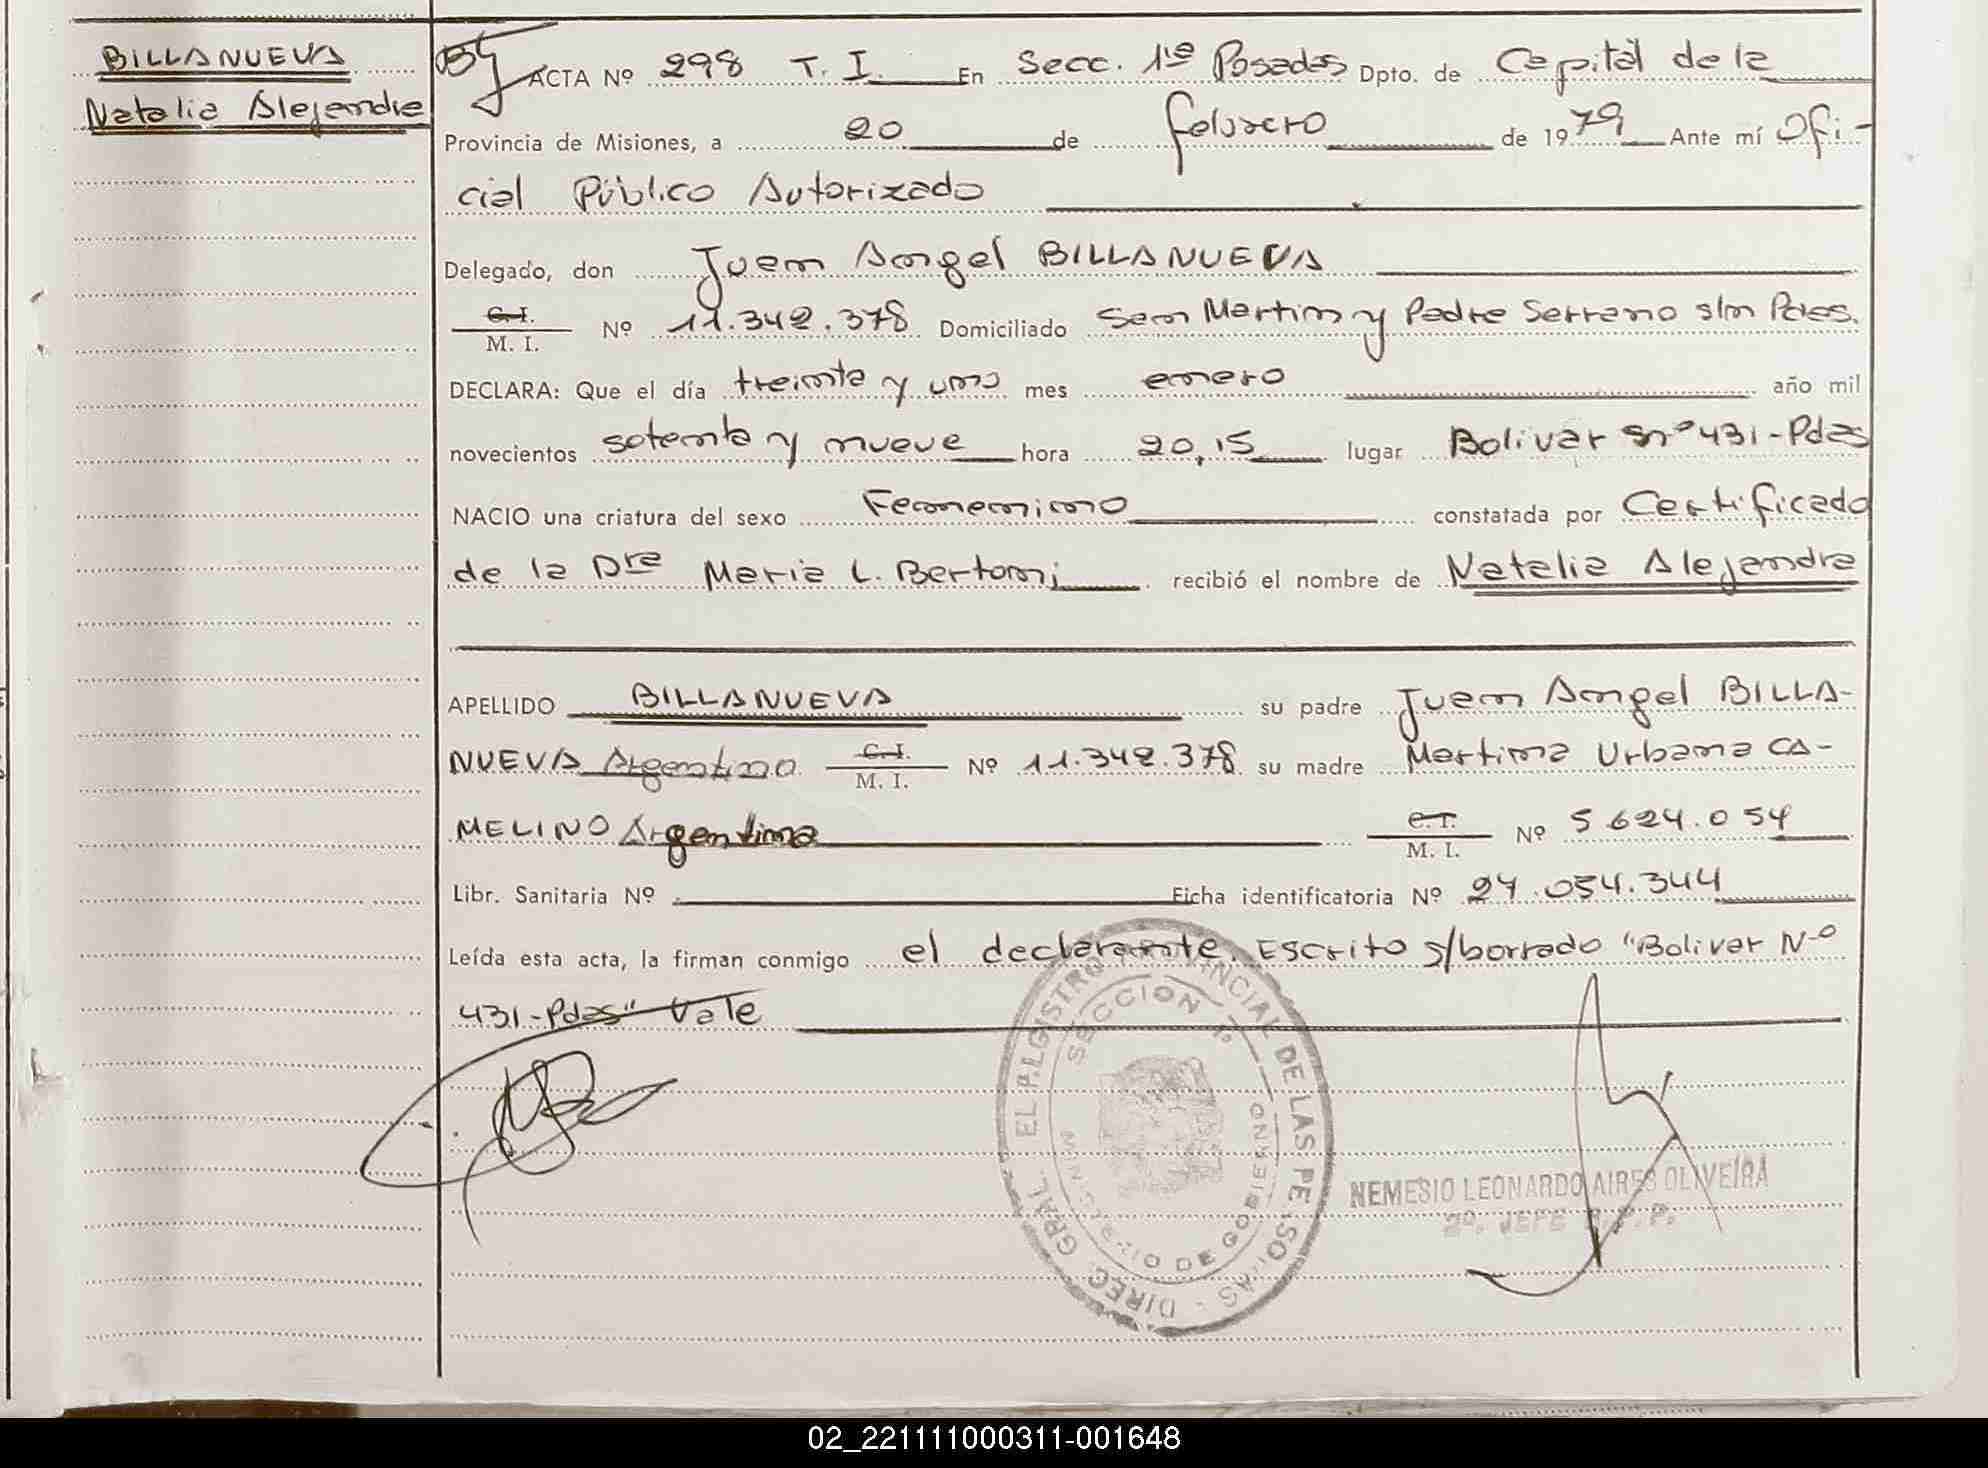 BILLANUEVA
Natalia Alejandra
ACTA Nº 298 T. I. En Secc. 1ª Posadas Dpto. de Capital de la
Provincia de Misiones, a 20 de febrero de 1979 Ante mí Ofi-
cial Público Autorizado
Delegado, don Juan Angel BILLANUEVA
C.I.
M. I. Nº 11.342.378 Domiciliado San Martin y Padre Serrano s/n Pdas.
DECLARA: Que el día treinta y uno mes enero año mil
novecientos setenta y nueve hora 20,15 lugar Bolivar nº 431-Pdas
NACIO una criatura del sexo Femenino constatada por Certificado
de la Dra Maria L. Bertoni recibió el nombre de Natalia Alejandra
APELLIDO BILLANUEVA su padre Juan Angel BILLA-
NUEVA Argentino C.I. M. I. Nº 11.342.378 su madre Martina Urbana CA-
MELINO Argentina C.I. M. I. Nº 5.624.054
Libr. Sanitaria Nº Ficha identificatoria Nº 27.054.344
Leída esta acta, la firman conmigo el declarante. Escrito s/borrado "Bolivar Nº
431-Pdas" Vale
DIREC. GRAL. DEL REGISTRO PROVINCIAL DE LAS PERSONAS
SECCION 1ª
MINISTERIO DE GOBIERNO
NEMESIO LEONARDO AIRES OLIVEIRA
2º. JEFE R.P.P.
02_221111000311-001648